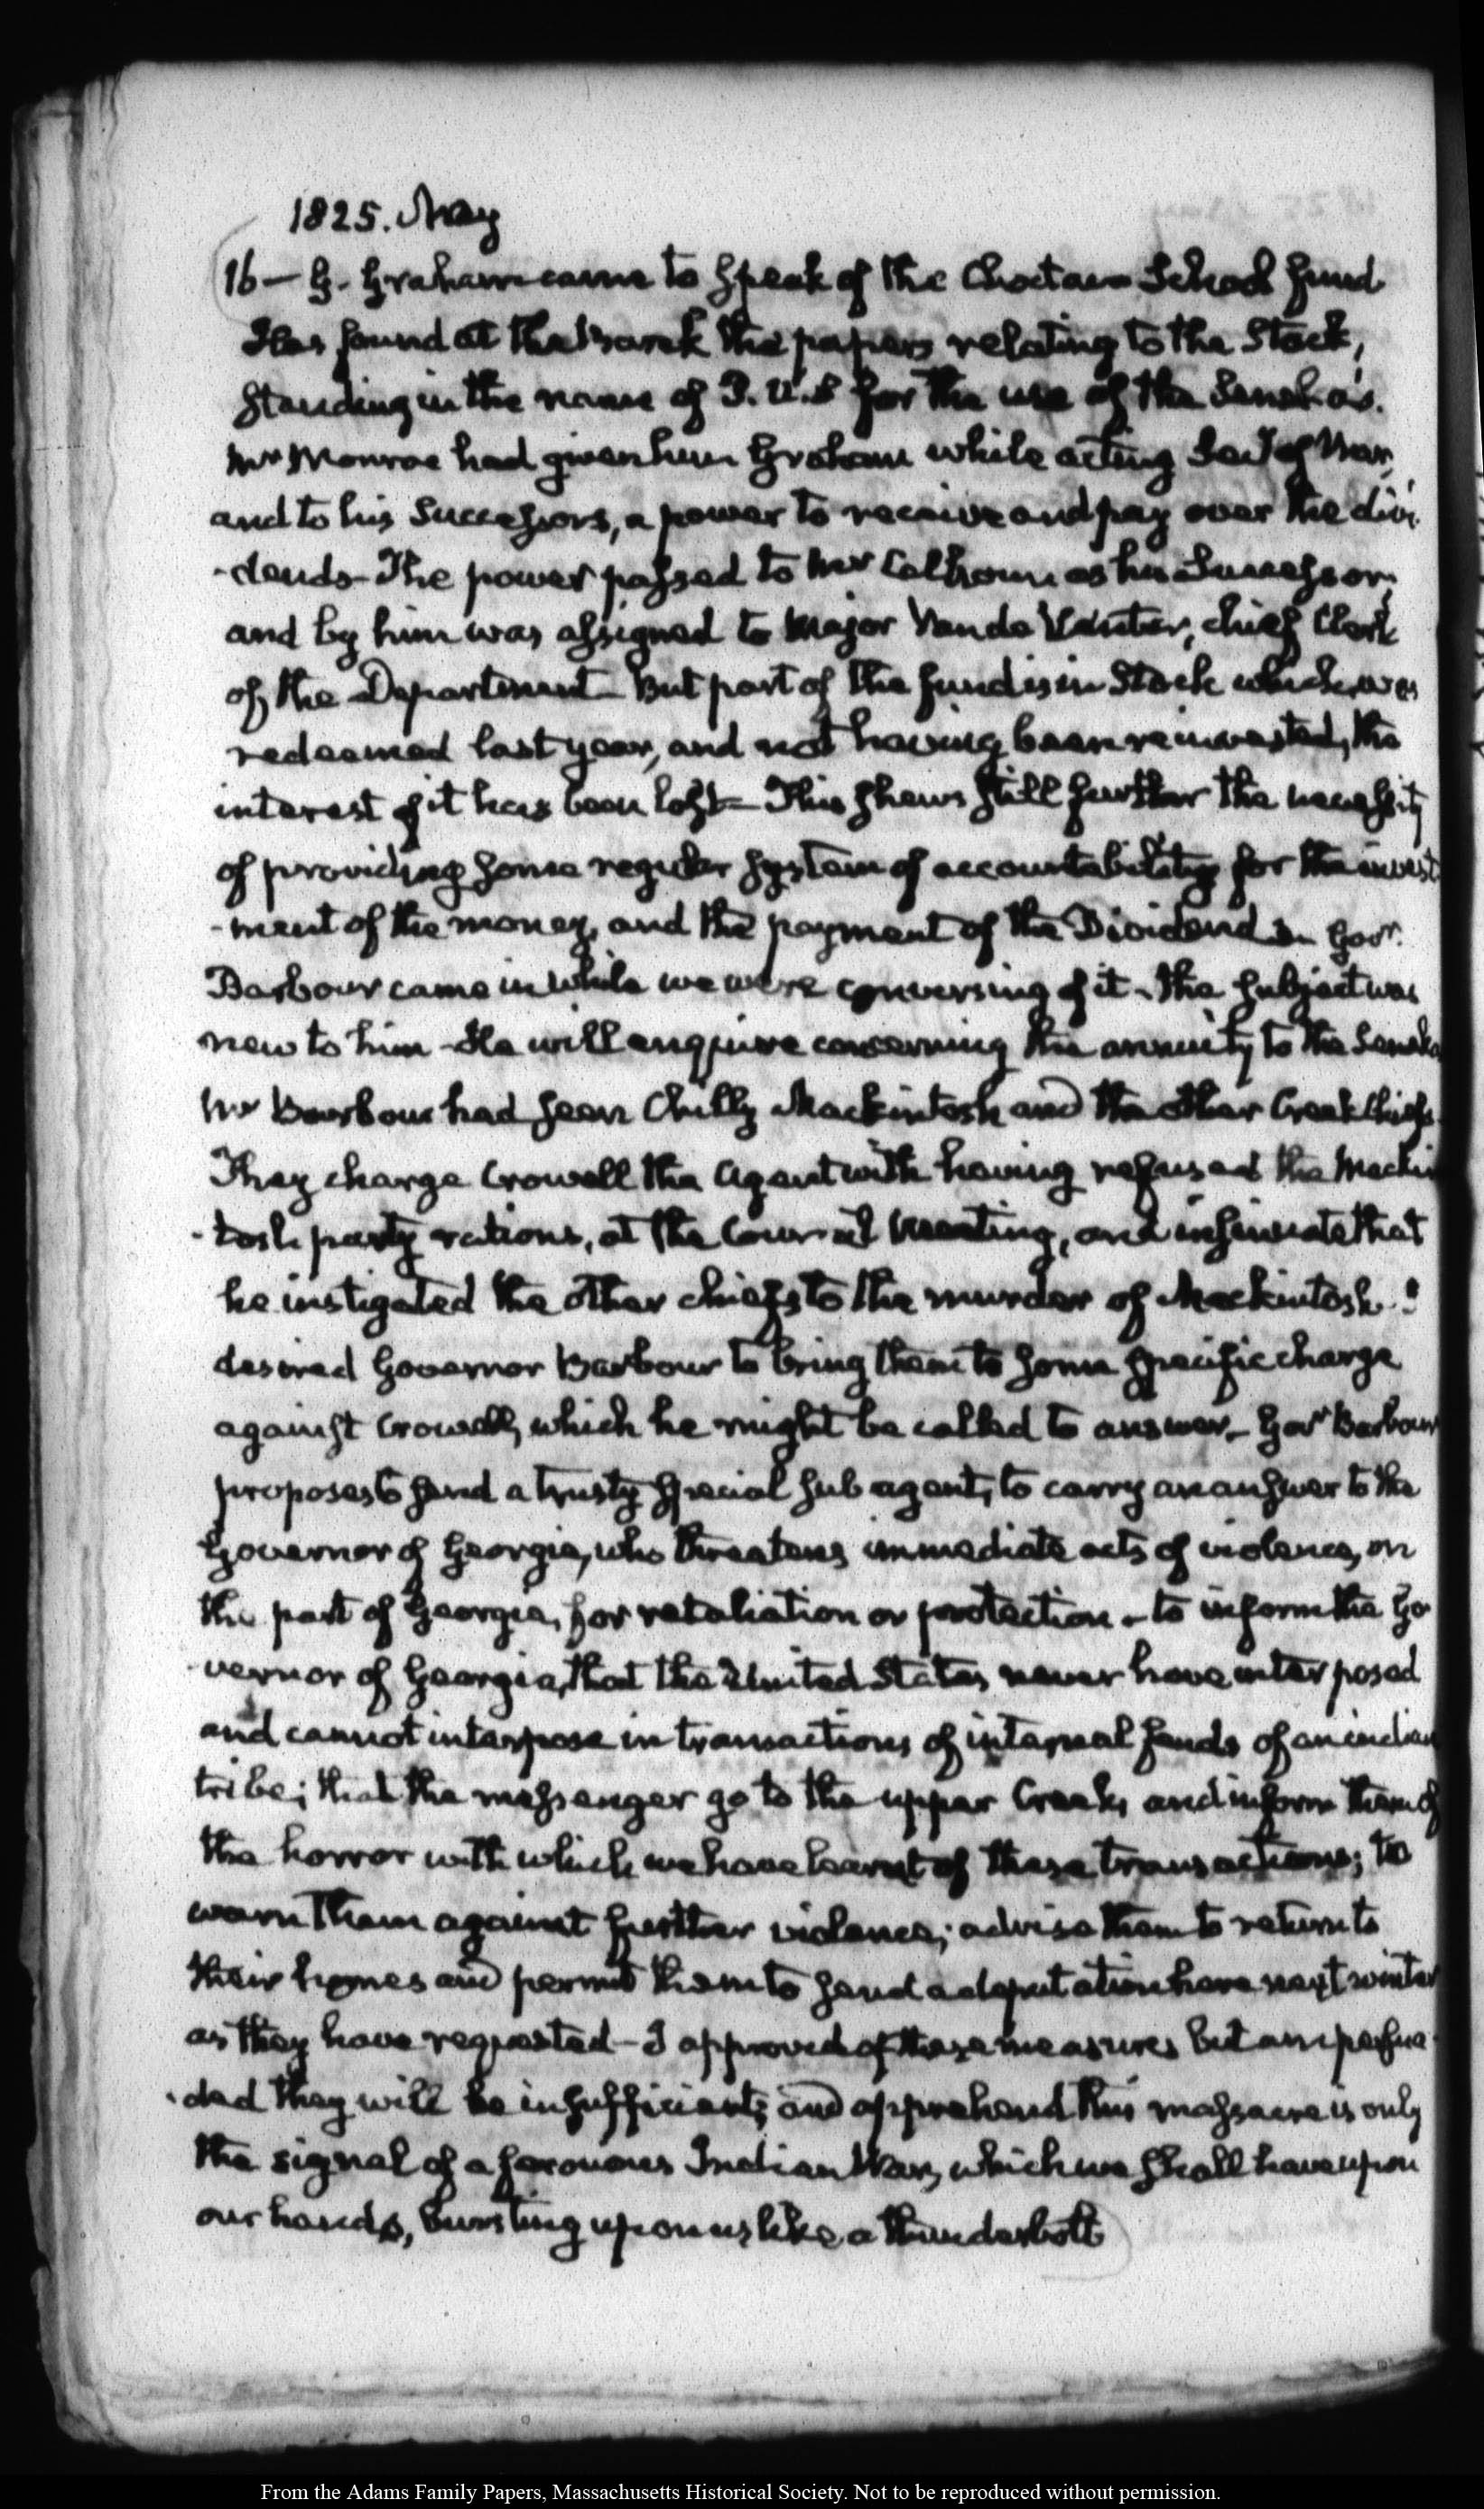 1825. May
16 — G. Graham came to speak of the Choctaw School fund
Has found at the Bank the papers relating to the Stock,
standing in the name of P. U.S for the use of the Senekas.
Mr Monroe had given him Graham while acting Secy of War,
and to his Successors, a power to receive and pay over the divi
-dends— The power passed to Mr Calhoun as his Successor,
and by him was assigned to Major Vande Venter, chief Clerk
of the Department— But part of the fund is in Stock which was
redeemed last year, and not having been reinvested, the
interest of it has been lost— This shews still further the necessity
of providing some regular system of accountability for the invest
-ment of the money, and the payment of the Dividends— Govr.
Barbour came in while we were conversing of it— the subject was
new to him— He will enquire concerning the annuity to the Seneka
Mr Barbour had seen Chilly Mackintosh and the other Creek Chiefs.
They charge Crowell the Agent with having refused the Mackin
-tosh party rations, at the Council Meeting, and insinuate that
he instigated the other chiefs to the murder of Mackintosh. I
desired Governor Barbour to bring them to some specific charge
against Crowell, which he might be called to answer— Govr Barbour
proposes to send a trusty special sub agent, to carry an answer to the
Governor of Georgia, who threatens immediate acts of violence, on
the part of Georgia, for retaliation or protection— to inform the Go
-vernor of Georgia, that the United States never have interposed
and cannot interpose in transactions of internal feuds of an indian
tribe; that the messenger go to the upper Creeks, and inform them of
the horror with which we have learnt of these transactions; to
warn them against further violence; advise them to return to
their homes and permit them to send a deputation here next winter
as they have requested— I approved of these measures but am persua
-ded they will be insufficient; and apprehend this massacre is only
the signal of a ferocious Indian War, which we shall have upon
our hands, bursting upon us like a thunderbolt
From the Adams Family Papers, Massachusetts Historical Society. Not to be reproduced without permission.